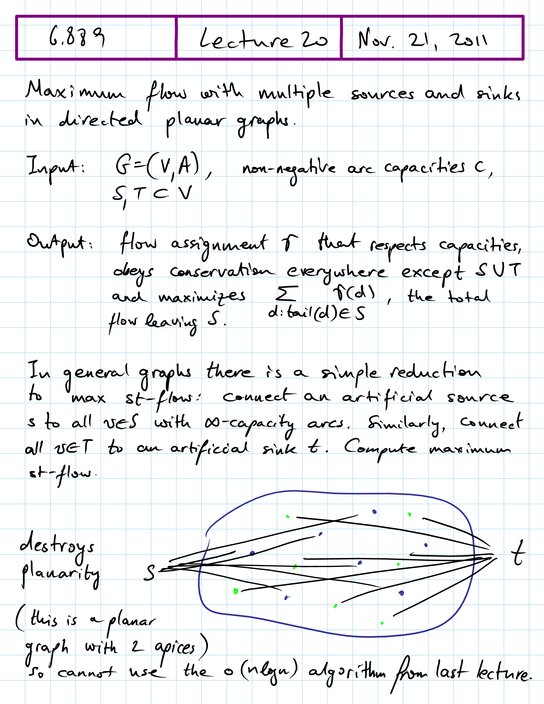 6.889 Lecture 20 Nov. 21, 2011
Maximum flow with multiple sources and sinks
in directed planar graphs.
Input: G=(V,A), non-negative arc capacities c,
S,T ⊂ V
Output: flow assignment γ that respects capacities,
obeys conservation everywhere except S∪T
and maximizes ∑ γ(d), the total
d:tail(d)∈S
flow leaving S.
In general graphs there is a simple reduction
to max st-flow: connect an artificial source
s to all v∈S with ∞-capacity arcs. Similarly, connect
all v∈T to an artificial sink t. Compute maximum
st-flow.
destroys
planarity
s
t
(this is a planar
graph with 2 apices)
so cannot use the o(nlgn) algorithm from last lecture.